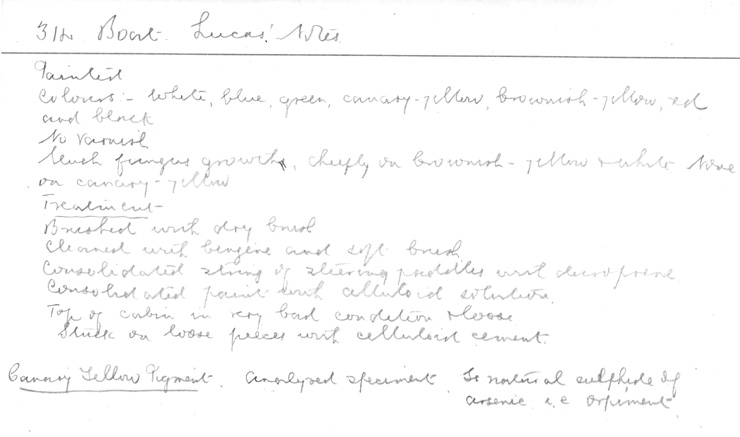 314 Boat. Lucas' Notes
Painted
Colours:- White, blue, green, canary-yellow, brownish-yellow, red
and black
No varnish
Much fungus growth, chiefly on brownish-yellow & white None
on canary-yellow
Treatment
Brushed with dry brush
Cleaned with benzine and soft brush
Consolidated string of steering paddles with duroprene
Consolidated paint with celluloid solution.
Top of cabin in very bad condition & loose
Stuck on loose pieces with celluloid cement.
Canary Yellow Pigment. Analysed specimen. Is natural sulphide of
arsenic i.e orpiment.